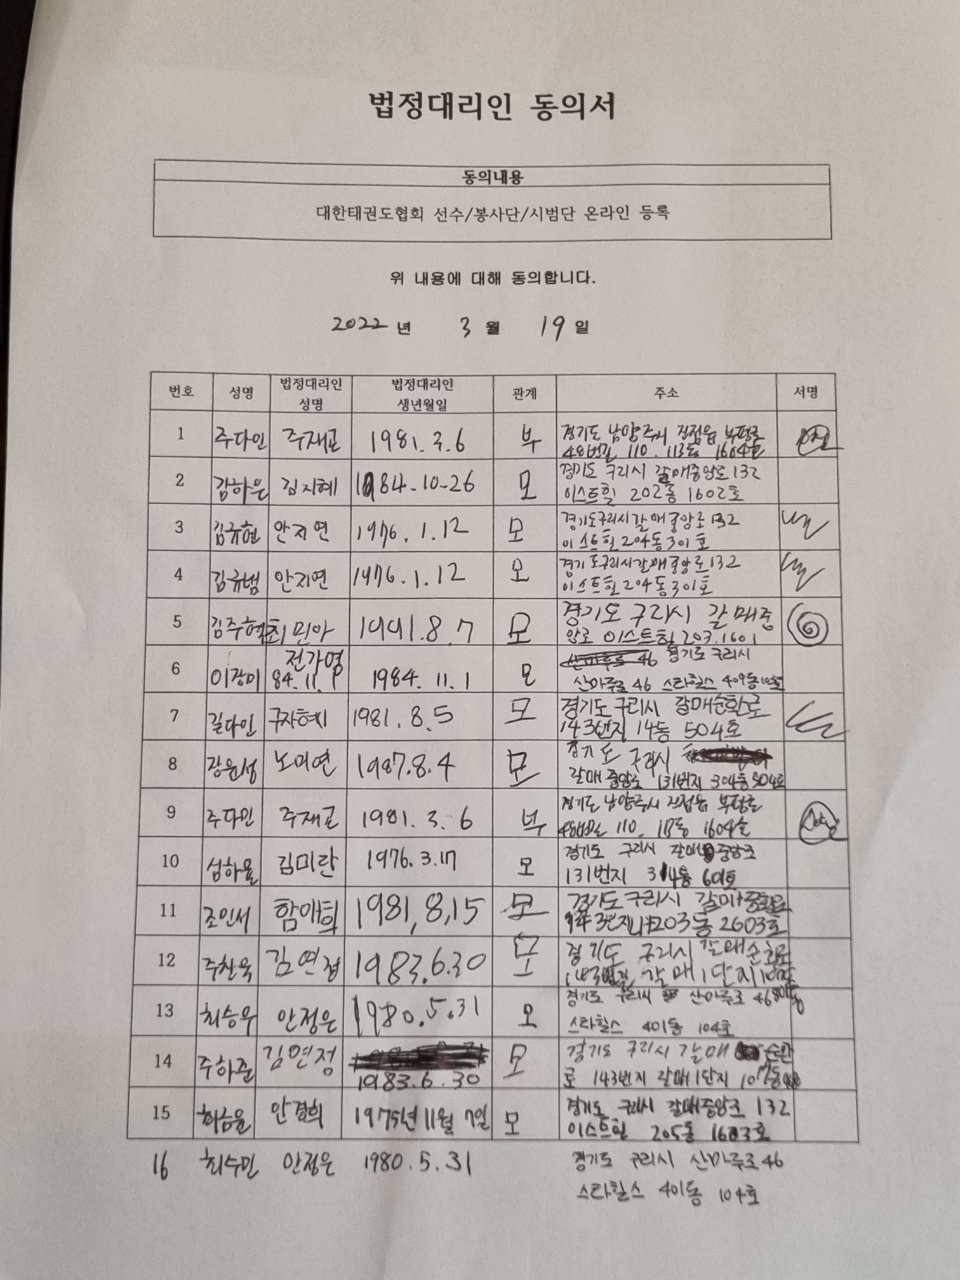 법정대리인 동의서
동의내용
대한태권도협회 선수/봉사단/시범단 온라인 등록
위 내용에 대해 동의합니다.
2022 년 3 월 19 일
번호 성명 법정대리인 성명 법정대리인 생년월일 관계 주소 서명
1 주다인 주재균 1981.3.6 부 경기도 남양주시 진접읍 부평로
48번길 110. 113동 1604호
2 김하은 김지혜 1984.10.26 모 경기도 구리시 갈매중앙로 132
이스트힐 202동 1602호
3 김규현 안지연 1976.1.12 모 경기도구리시갈매중앙로 132
이스트힐 204동 301호
4 김규범 안지연 1976.1.12 모 경기도구리시갈매중앙로 132
이스트힐 204동 301호
5 김주혁 최민아 1991.8.7 모 경기도 구리시 갈매중
앙로 이스트힐 203.1601
6 이장미 전가영 84.11.1 1984.11.1 모 46 경기도 구리시
산마루로 46 스타힐스 409동
7 길다인 구자혜 1981.8.5 모 경기도 구리시 갈매순환로
143번지 14동 504호
8 노미연 1987.8.4 모 경기도 구리시
갈매 중앙로 131번지 304동 504호
9 주다민 주재균 1981.3.6 부 경기도 남양주시 진접읍 부평로
48번길 110. 113동 1604호
10 김미란 1976.3.17 모 경기도 구리시 갈매중앙로
131번지 314동 601호
11 조인서 함애희 1981,8,15 모 경기도 구리시
203동 2603호
12 주찬욱 김연정 1983.6.30 모 경기도 구리시 갈매순환로
갈매1단지
13 최승우 안정은 1980.5.31 모 경기도 구리시 산마루로 46
스타힐스 401동 104호
14 주하준 김연정 1983.6.30 모 경기도 구리시 갈매 순환
로 143번지 갈매1단지
15 안경희 1975년 11월 7일 모 경기도 구리시 갈매중앙로 132
이스트힐 205동 1603호
16 최수민 안정은 1980.5.31 경기도 구리시 산마루로 46
스타힐스 401동 104호